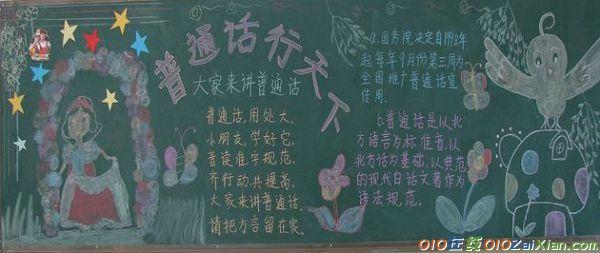 普通话行天下
大家来讲普通话
普通话,用处大,
小朋友,学好它,
音读准字规范,
齐行动,共提高,
大家来讲普通话,
请把方言留在家.
a.国务院决定自
起每年9月份第三周为
全国推广普通话宣
传周.
b.普通话是以北
方语言为标准音,以
北方话为基础,以典范
的现代白话文著作为
语法规范.
010在线010ZaiXian.com